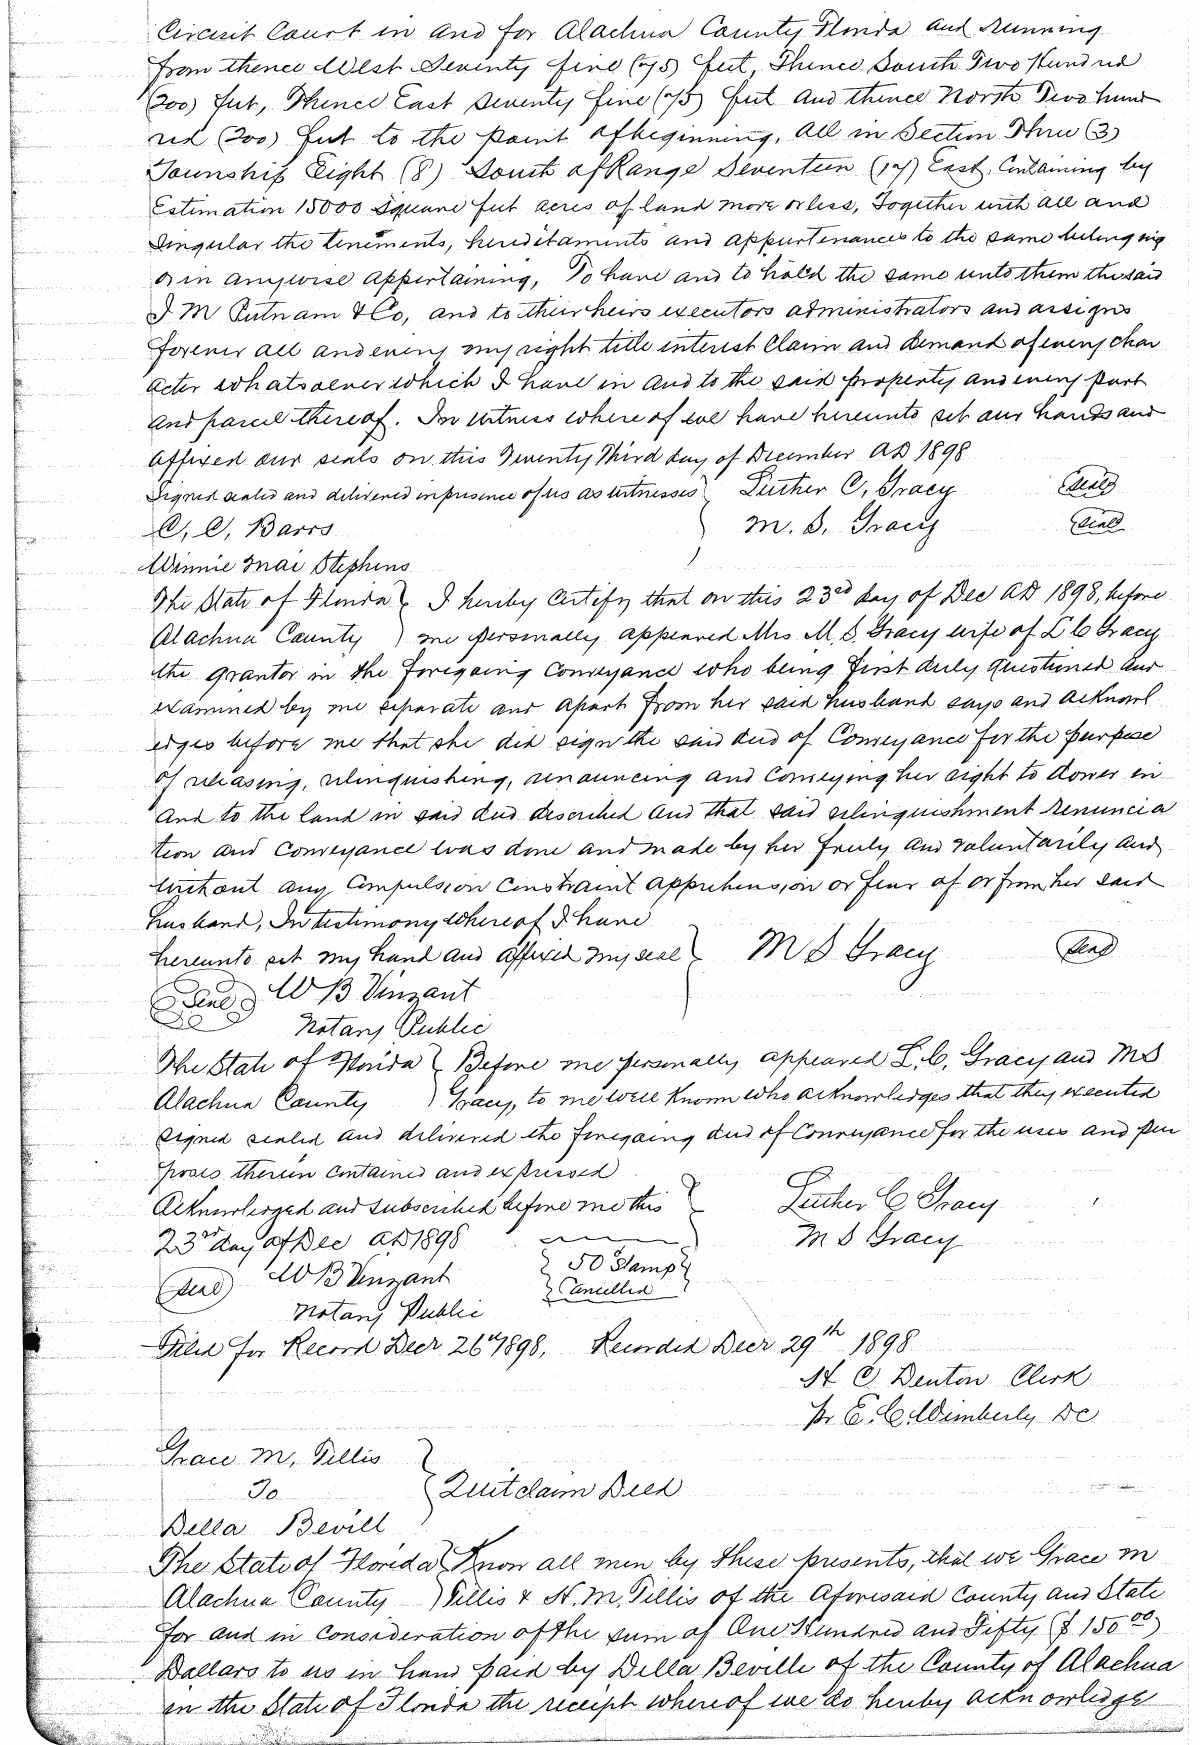 Circuit Court in and for Alachua County Florida and Running
from thence West Seventy five (75) feet, Thence South Two Hundred
(200) feet, Thence East Seventy five (75) feet and thence North Two hund
red (200) feet to the point of beginning, all in Section Three (3)
Township Eight (8) South of Range Seventeen (17) East, Containing by
Estimation 15000 Square feet acres of land more or less, Together with all and
Singular the tenements, hereditaments and appurtenances to the same belonging
or in anywise appertaining, To have and to hold the same unto them the said
I M Putnam & Co, and to their heirs executors administrators and assigns
forever all and every my right title interest Claim and demand of every char
acter whatsoever which I have in and to the said property and every part
and parcel thereof. In witness where of we have hereunto set our hands and
affixed our seals on this Twenty Third day of December AD 1898
Signed sealed and delivered in presence of us as witnesses } Luther C, Gracy (Seal)
C, C, Barrs ) M. S. Gracy (Seal)
Winnie Mai Stephens )
The State of Florida } I hereby Certify that on this 23rd day of Dec AD 1898, before
Alachua County ) me personally appeared Mrs M. S Gracy wife of L C Gracy
the grantor in the foregoing conveyance who being first duly questioned and
examined by me separate and apart from her said husband says and acknowl
edges before me that she did sign the said deed of Conveyance for the purpose
of releasing, relinquishing, renouncing and Conveying her right to dower in
and to the land in said deed described and that said relinquishment Renuncia
tion and Conveyance was done and made by her freely and voluntarily and
without any Compulsion Constraint apprehension or fear of or from her said
husband, In testimony whereof I have
hereunto set my hand and affixed my seal } M S Gracy (Seal)
(Seal) W B Vinzant
Notary Public
The State of Florida } Before me personally appeared L. C, Gracy and M S
Alachua County ) Gracy, to me well known who acknowledges that they executed
signed sealed and delivered the foregoing deed of Conveyance for the uses and pur
poses therein contained and expressed
Acknowledged and subscribed before me this } Luther C Gracy
23rd day of Dec AD 1898 M S Gracy
(Seal) W B Vinzant { 50 Stamp }
{ Cancelled }
Notary Public
Filed for Record Decr 26th 1898, Recorded Decr 29th 1898
H C Denton Clerk
pr E. C. Wimberly DC
Grace M, Tillis }
To { Quitclaim Deed
Della Bevill
The State of Florida } Know all men by these presents, that we Grace M
Alachua County ) Tillis & H. M. Tillis of the aforesaid County and State
for and in consideration of the sum of One Hundred and Fifty ($ 150 00)
Dollars to us in hand paid by Della Beville of the County of Alachua
in the State of Florida the receipt whereof we do hereby acknowledge